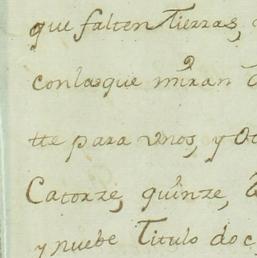 que falten Tierras,
con las que miran
tte para unos, y Ot
Catorze, quinze,
y nuebe Titulo doc